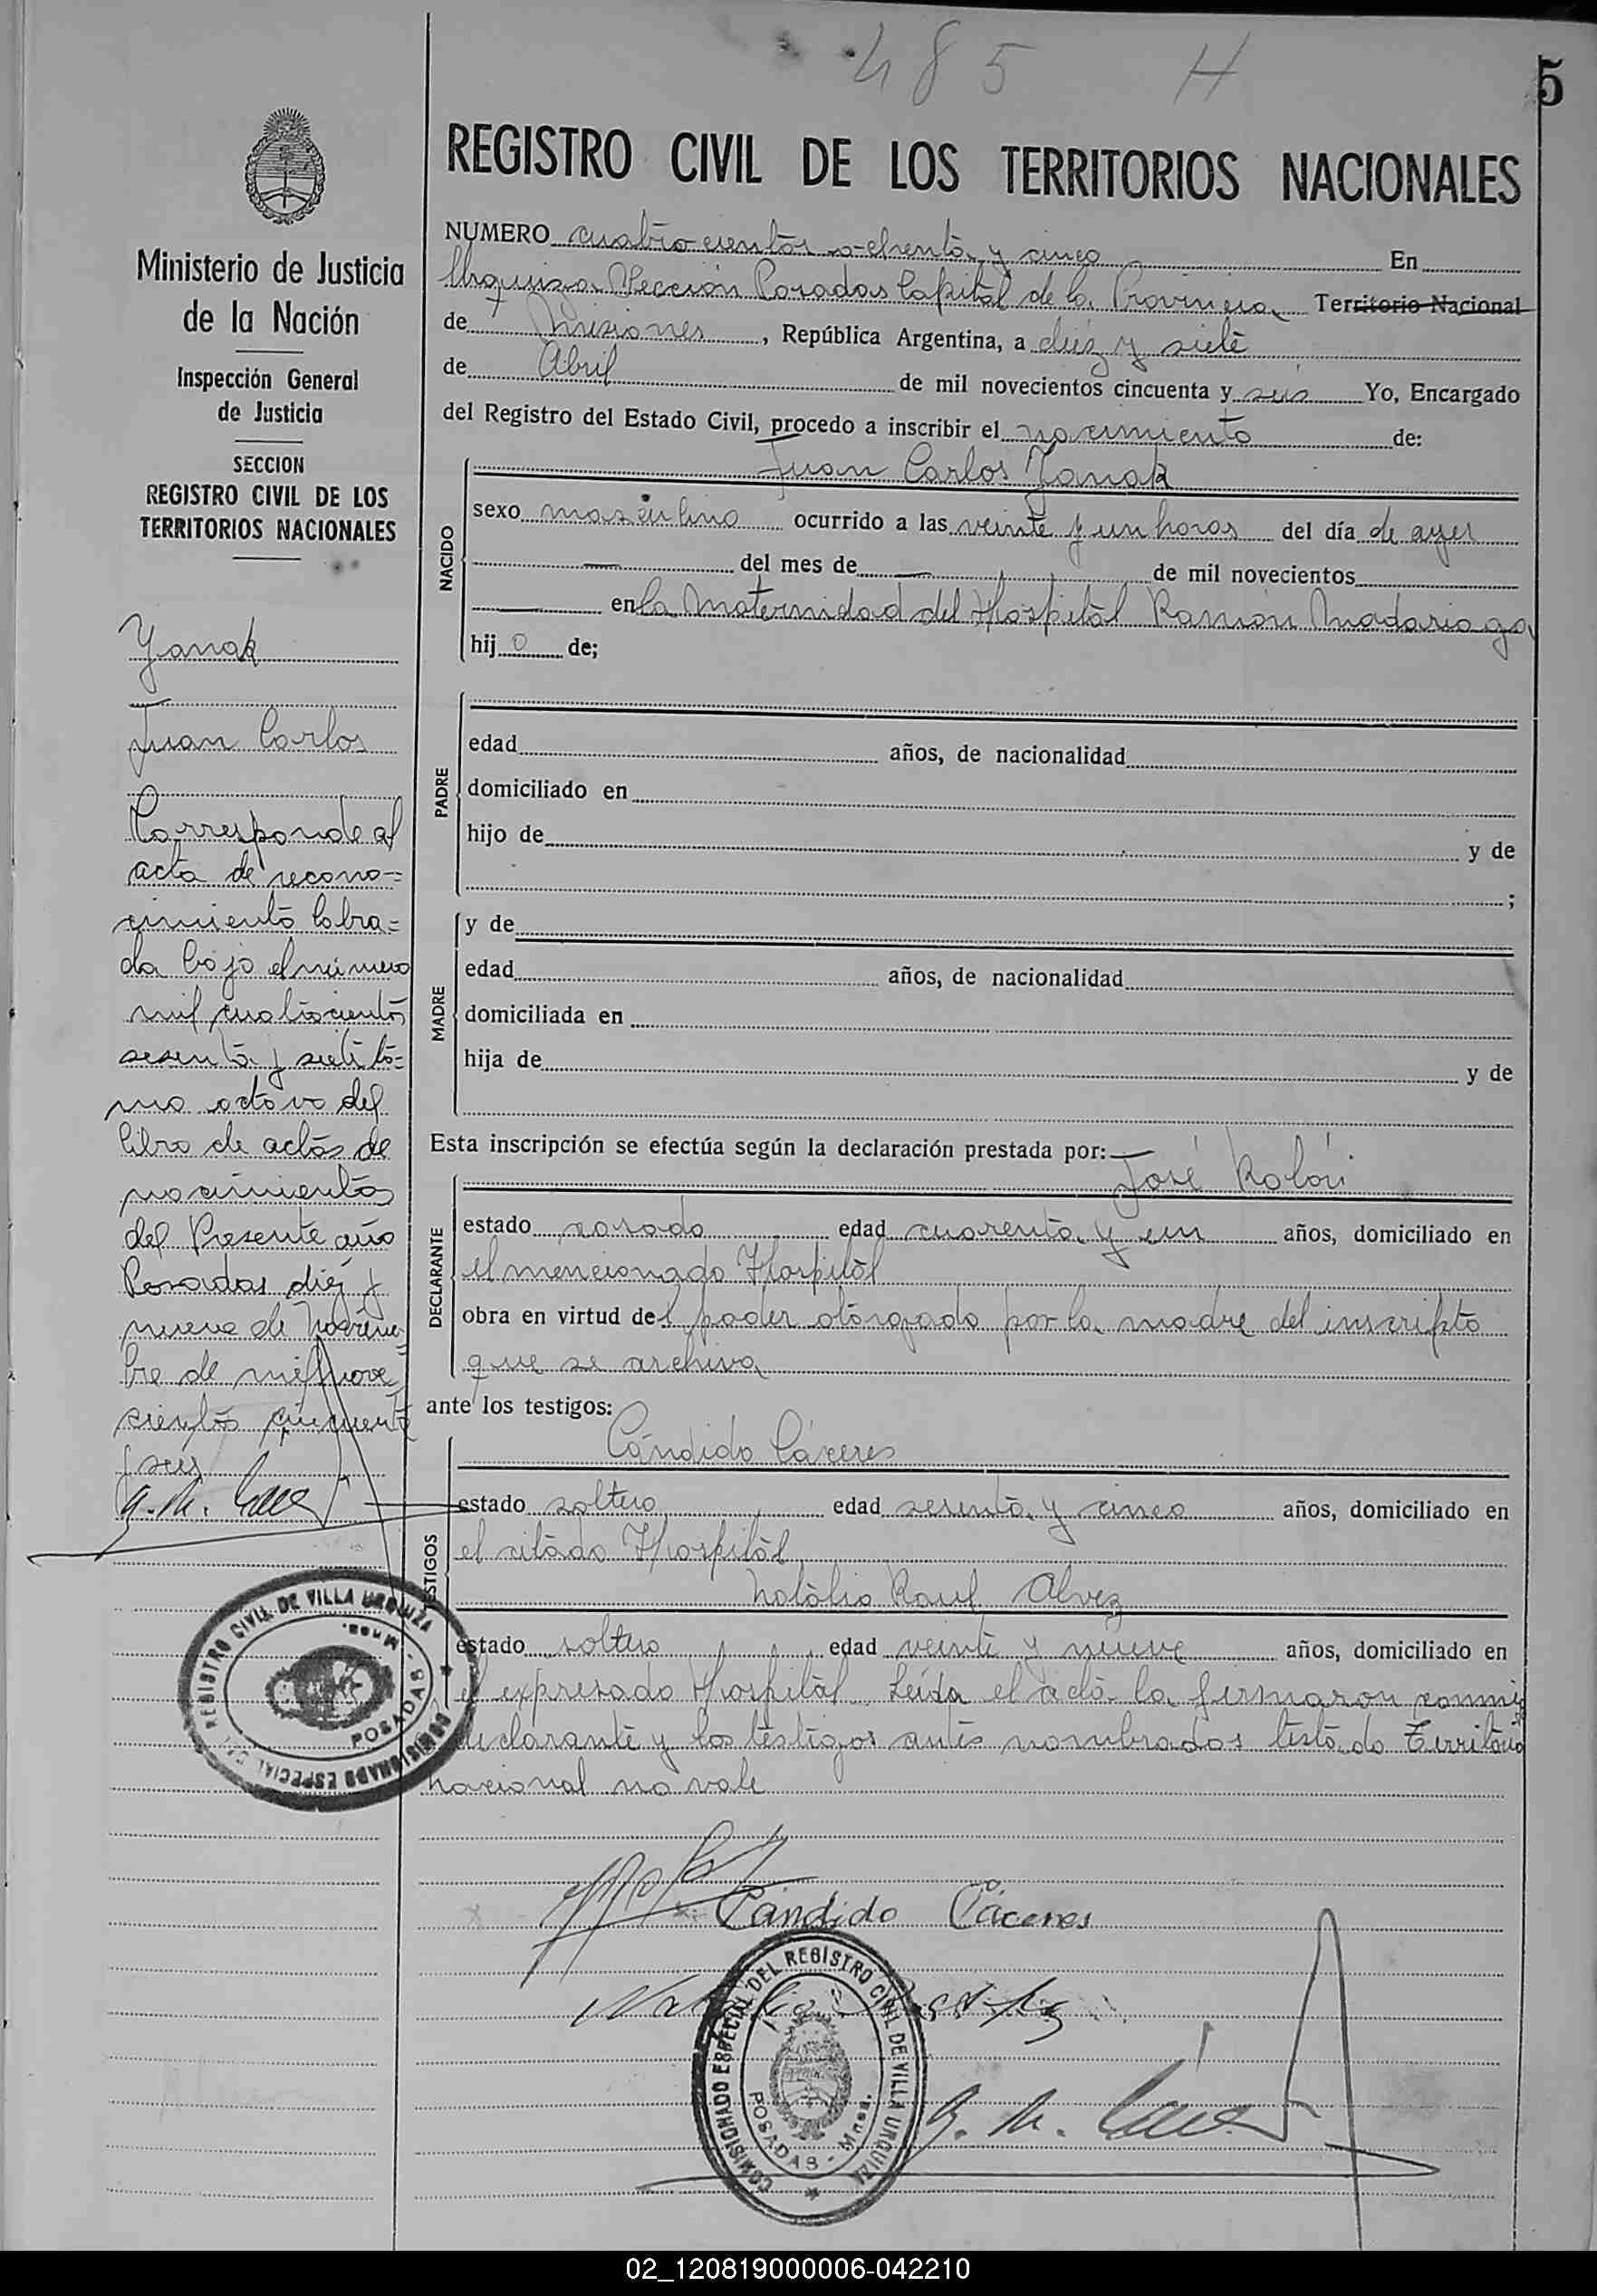 485 H
5
REGISTRO CIVIL DE LOS TERRITORIOS NACIONALES
Ministerio de Justicia
de la Nación
Inspección General
de Justicia
SECCION
REGISTRO CIVIL DE LOS
TERRITORIOS NACIONALES
Yanak
Juan Carlos
Corresponde al
acta de recono=
cimiento labra=
da bajo el número
mil cuatrocientos
sesenta y siete to=
mo octavo del
libro de actas de
nacimientos
del Presente año
Posadas diez y
nueve de Noviem
bre de mil nove
cientos cincuenta
y seis
REGISTRO CIVIL DE VILLA URQUIZA
COMISIONADO ESPECIAL
POSADAS - Mnes.
NUMERO cuatrocientos ochenta y cinco En
Urquiza Sección Posadas Capital de la Provincia Territorio Nacional
de Misiones, República Argentina, a diez y siete
de Abril de mil novecientos cincuenta y seis Yo, Encargado
del Registro del Estado Civil, procedo a inscribir el nacimiento de:
Juan Carlos Yanak
NACIDO
sexo masculino ocurrido a las veinte y un horas del día de ayer
— del mes de — de mil novecientos
— en la Maternidad del Hospital Ramón Madariaga
hij o de;
PADRE
edad años, de nacionalidad
domiciliado en
hijo de y de
;
MADRE
y de
edad años, de nacionalidad
domiciliada en
hija de y de
Esta inscripción se efectúa según la declaración prestada por:— José Rolón
DECLARANTE
estado casado edad cuarenta y un años, domiciliado en
el mencionado Hospital
obra en virtud del poder otorgado por la madre del inscripto
que se archiva
ante los testigos:
Cándido Cáceres
TESTIGOS
estado soltero edad sesenta y cinco años, domiciliado en
el citado Hospital
Natalio Raul Alvez
estado soltero edad veinte y nueve años, domiciliado en
el expresado Hospital. Leída el acta la firmaron conmigo
declarante y los testigos antes nombrados testado Territorio
nacional no vale
Cándido Cáceres
COMISIONADO ESPECIAL DEL REGISTRO CIVIL DE VILLA URQUIZA
POSADAS - Mnes.
02_120819000006-042210